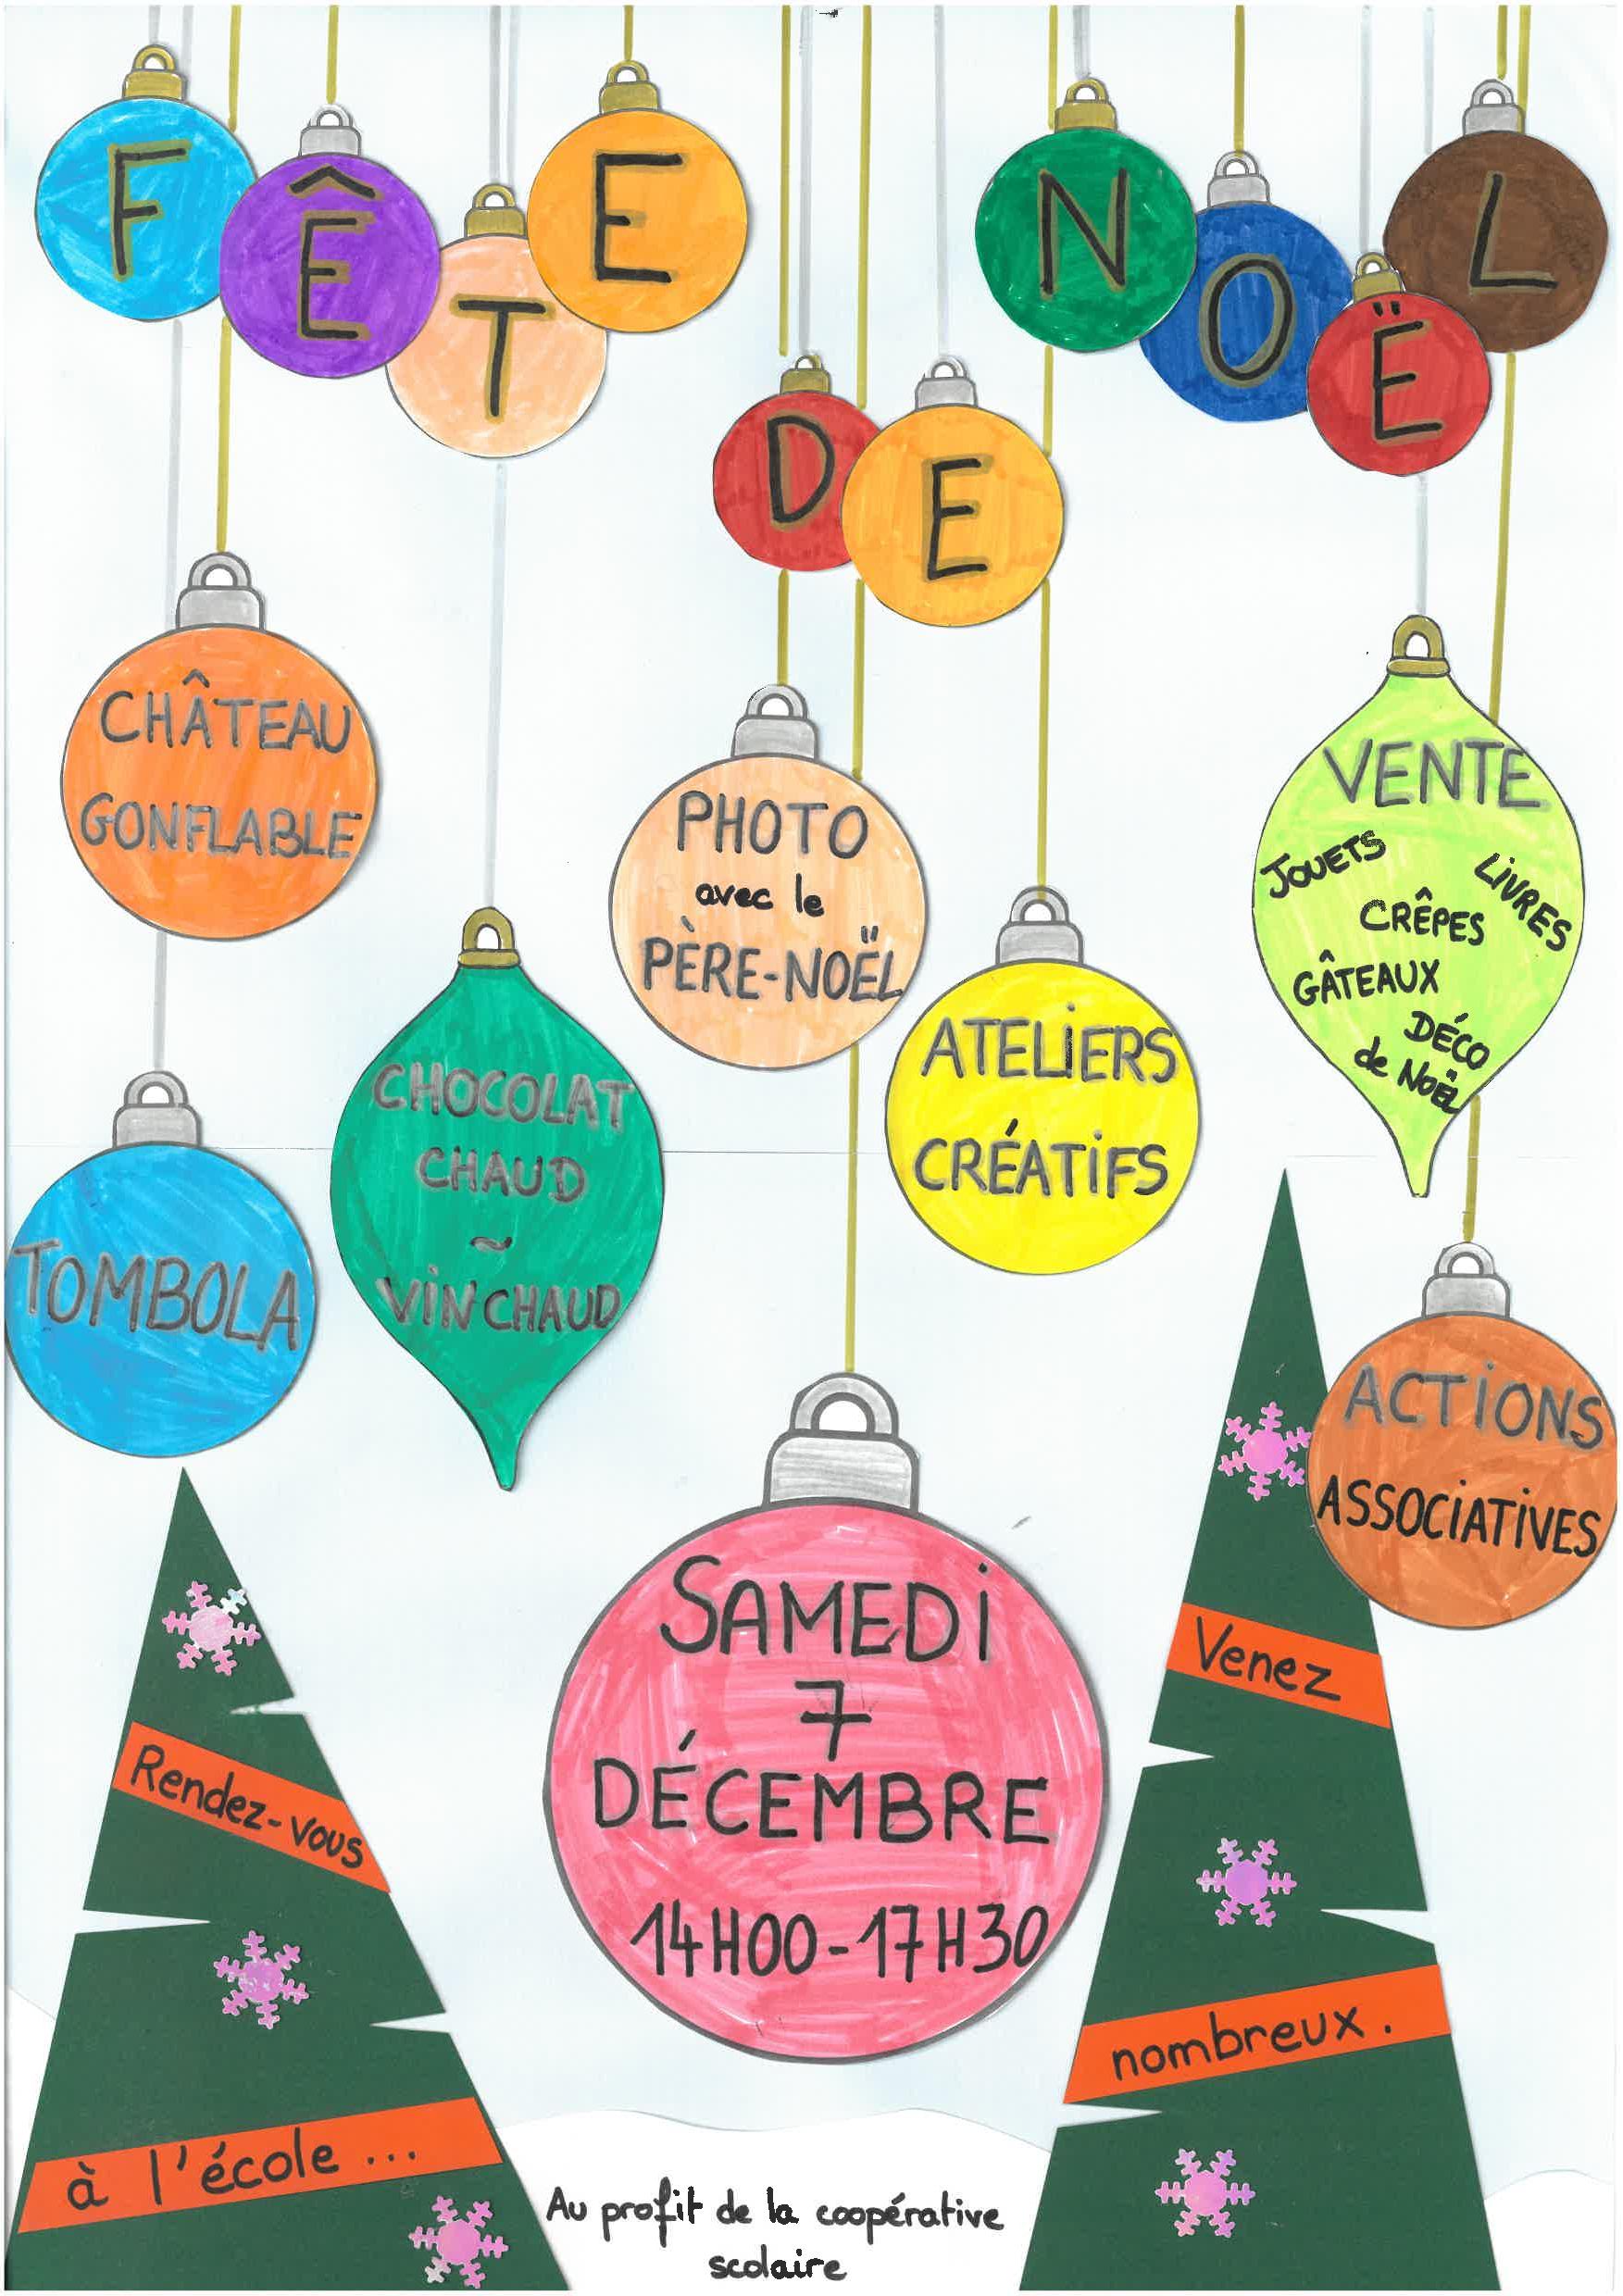 FÊTE
DE
NOËL
CHÂTEAU
GONFLABLE
PHOTO
avec le
PÈRE-NOËL
VENTE
JOUETS
LIVRES
CRÊPES
GÂTEAUX
DÉCO
de NOËL
TOMBOLA
CHOCOLAT
CHAUD
~
VIN CHAUD
ATELIERS
CRÉATIFS
ACTIONS
ASSOCIATIVES
SAMEDI
7
DÉCEMBRE
14H00-17H30
Rendez-vous
à l'école ...
Venez
nombreux.
Au profit de la coopérative
scolaire